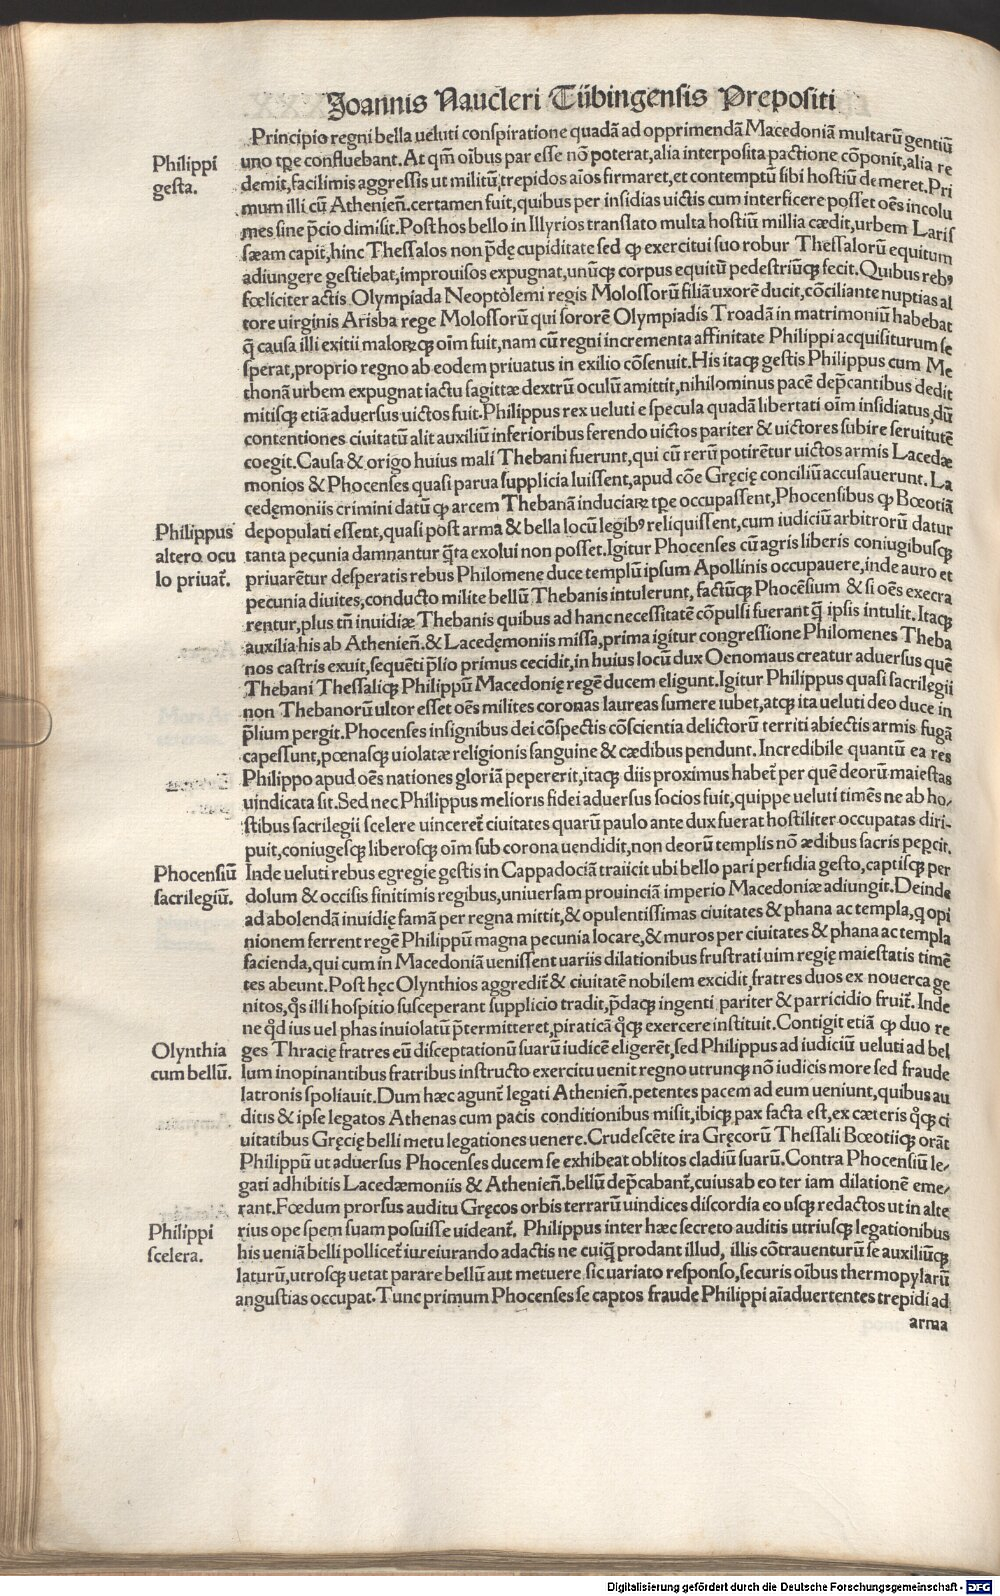 Joannis Naucleri Tübingensis Prepositi
Principio regni bella ueluti conspiratione quadā ad opprimendā Macedoniā multarū gentiū
Philippi
gesta.
uno tp̄e confluebant. At qm̄ oībus par esse nō poterat, alia interposita pactione cōponit, alia re
demit, facilimis aggressis ut militū, trepidos aīos firmaret, et contemptū sibi hostiū demeret. Pri
mum illi cū Athenien̄. certamen fuit, quibus per insidias uictis cum interficere posset oēs incolu
mes sine p̄cio dimisit. Post hos bello in Illyrios translato multa hostiū millia cædit, urbem Laris
sæam capit, hinc Thessalos non p̄dę cupiditate sed ꝙ exercitui suo robur Thessalorū equitum
adiungere gestiebat, improuisos expugnat, unūqꝫ corpus equitū pedestriūqꝫ fecit. Quibus rebꝰ
fœliciter actis Olympiada Neoptolemi regis Molossorū filiā uxorē ducit, cōciliante nuptias al
tore uirginis Arisba rege Molossorū qui sororē Olympiadis Troadā in matrimoniū habebat
q̄ causa illi exitii malorꝫqꝫ oīm fuit, nam cū regni incrementa affinitate Philippi acquisiturum se
sperat, proprio regno ab eodem priuatus in exilio cōsenuit. His itaqꝫ gestis Philippus cum Me
thonā urbem expugnat iactu sagittæ dextrū oculū amittit, nihilominus pacē dep̄cantibus dedit
mitisqꝫ etiā aduersus uictos fuit. Philippus rex ueluti e specula quadā libertati oīm insidiatus, dū
contentiones ciuitatū alit auxiliū inferioribus ferendo uictos pariter & uictores subire seruitutē
coegit. Causa & origo huius mali Thebani fuerunt, qui cū rerū potirētur uictos armis Lacedæ
monios & Phocenses quasi parua supplicia luissent, apud cōe Gręcię conciliū accusauerunt. La
cedęmoniis crimini datū ꝙ arcem Thebanā induciarꝫ tp̄e occupassent, Phocensibus ꝙ Bœotiā
Philippus
altero ocu
lo priuat̄.
depopulati essent, quasi post arma & bella locū legibꝰ reliquissent, cum iudiciū arbitrorū datur
tanta pecunia damnantur q̄ta exolui non posset. Igitur Phocenses cū agris liberis coniugibusqꝫ
priuarētur desperatis rebus Philomene duce templū ipsum Apollinis occupauere, inde auro et
pecunia diuites, conducto milite bellū Thebanis intulerunt, factūqꝫ Phocēsium & si oēs execra
rentur, plus tn̄ inuidiæ Thebanis quibus ad hanc necessitatē cōpulsi fuerant q̄ ipsis intulit. Itaqꝫ
auxilia his ab Athenien̄. & Lacedęmoniis missa, prima igitur congressione Philomenes Theba
nos castris exuit, sequēti p̄lio primus cecidit, in huius locū dux Oenomaus creatur aduersus quē
Thebani Thessaliqꝫ Philippū Macedonię regē ducem eligunt. Igitur Philippus quasi sacrilegii
non Thebanorū ultor esset oēs milites coronas laureas sumere iubet, atqꝫ ita ueluti deo duce in
p̄lium pergit. Phocenses insignibus dei cōspectis cōscientia delictorū territi abiectis armis fugā
capessunt, pœnasqꝫ uiolatæ religionis sanguine & cædibus pendunt. Incredibile quantū ea res
Philippo apud oēs nationes gloriā pepererit, itaqꝫ diis proximus habet̄ per quē deorū maiestas
uindicata sit. Sed nec Philippus melioris fidei aduersus socios fuit, quippe ueluti timēs ne ab ho⸗
stibus sacrilegii scelere uinceret̄ ciuitates quarū paulo ante dux fuerat hostiliter occupatas diri⸗
puit, coniugesqꝫ liberosqꝫ oīm sub corona uendidit, non deorū templis nō ædibus sacris pepcit.
Phocensiū
sacrilegiū.
Inde ueluti rebus egregie gestis in Cappadociā traiicit ubi bello pari perfidia gesto, captisqꝫ per
dolum & occisis finitimis regibus, uniuersam prouinciā imperio Macedoniæ adiungit. Deinde
ad abolendā inuidię famā per regna mittit, & opulentissimas ciuitates & phana ac templa, q opi
nionem ferrent regē Philippū magna pecunia locare, & muros per ciuitates & phana ac templa
facienda, qui cum in Macedoniā uenissent uariis dilationibus frustrati uim regię maiestatis timē
tes abeunt. Post hęc Olynthios aggredit̄ & ciuitatē nobilem excidit, fratres duos ex nouerca ge
nitos, q̊s illi hospitio susceperant supplicio tradit, p̄daqꝫ ingenti pariter & parricidio fruit̄. Inde
ne q̊d ius uel phas inuiolatū p̄termitteret, piraticā q̊qꝫ exercere instituit. Contigit etiā ꝙ duo re
Olynthia
cum bellū.
ges Thracię fratres eū disceptationū suarū iudicē eligerēt, sed Philippus ad iudiciū ueluti ad bel
lum inopinantibus fratribus instructo exercitu uenit regno utrunqꝫ nō iudicis more sed fraude
latronis spoliauit. Dum hæc agunt̄ legati Athenien̄. petentes pacem ad eum ueniunt, quibus au
ditis & ipse legatos Athenas cum pacis conditionibus misit, ibiqꝫ pax facta est, ex cæteris q̊qꝫ ci
uitatibus Gręcię belli metu legationes uenere. Crudescēte ira Gręcorū Thessali Bœotiiqꝫ orāt
Philippū ut aduersus Phocenses ducem se exhibeat oblitos cladiū suarū. Contra Phocensiū le⸗
gati adhibitis Lacedæmoniis & Athenien̄. bellū dep̄cabant̄, cuius ab eo ter iam dilationē eme⸗
rant. Fœdum prorsus auditu Gręcos orbis terrarū uindices discordia eo usqꝫ redactos ut in alte
Philippi
scelera.
rius ope spem suam posuisse uideant̄. Philippus inter hæc secreto auditis utriusqꝫ legationibus
his ueniā belli pollicet̄ iureiurando adactis ne cuiq̄ prodant illud, illis cōtrauenturū se auxiliūqꝫ
laturū, utrosqꝫ uetat parare bellū aut metuere sic uariato responso, securis oībus thermopylarū
angustias occupat. Tunc primum Phocenses se captos fraude Philippi aīaduertentes trepidi ad
arma
Digitalisierung gefördert durch die Deutsche Forschungsgemeinschaft - DFG